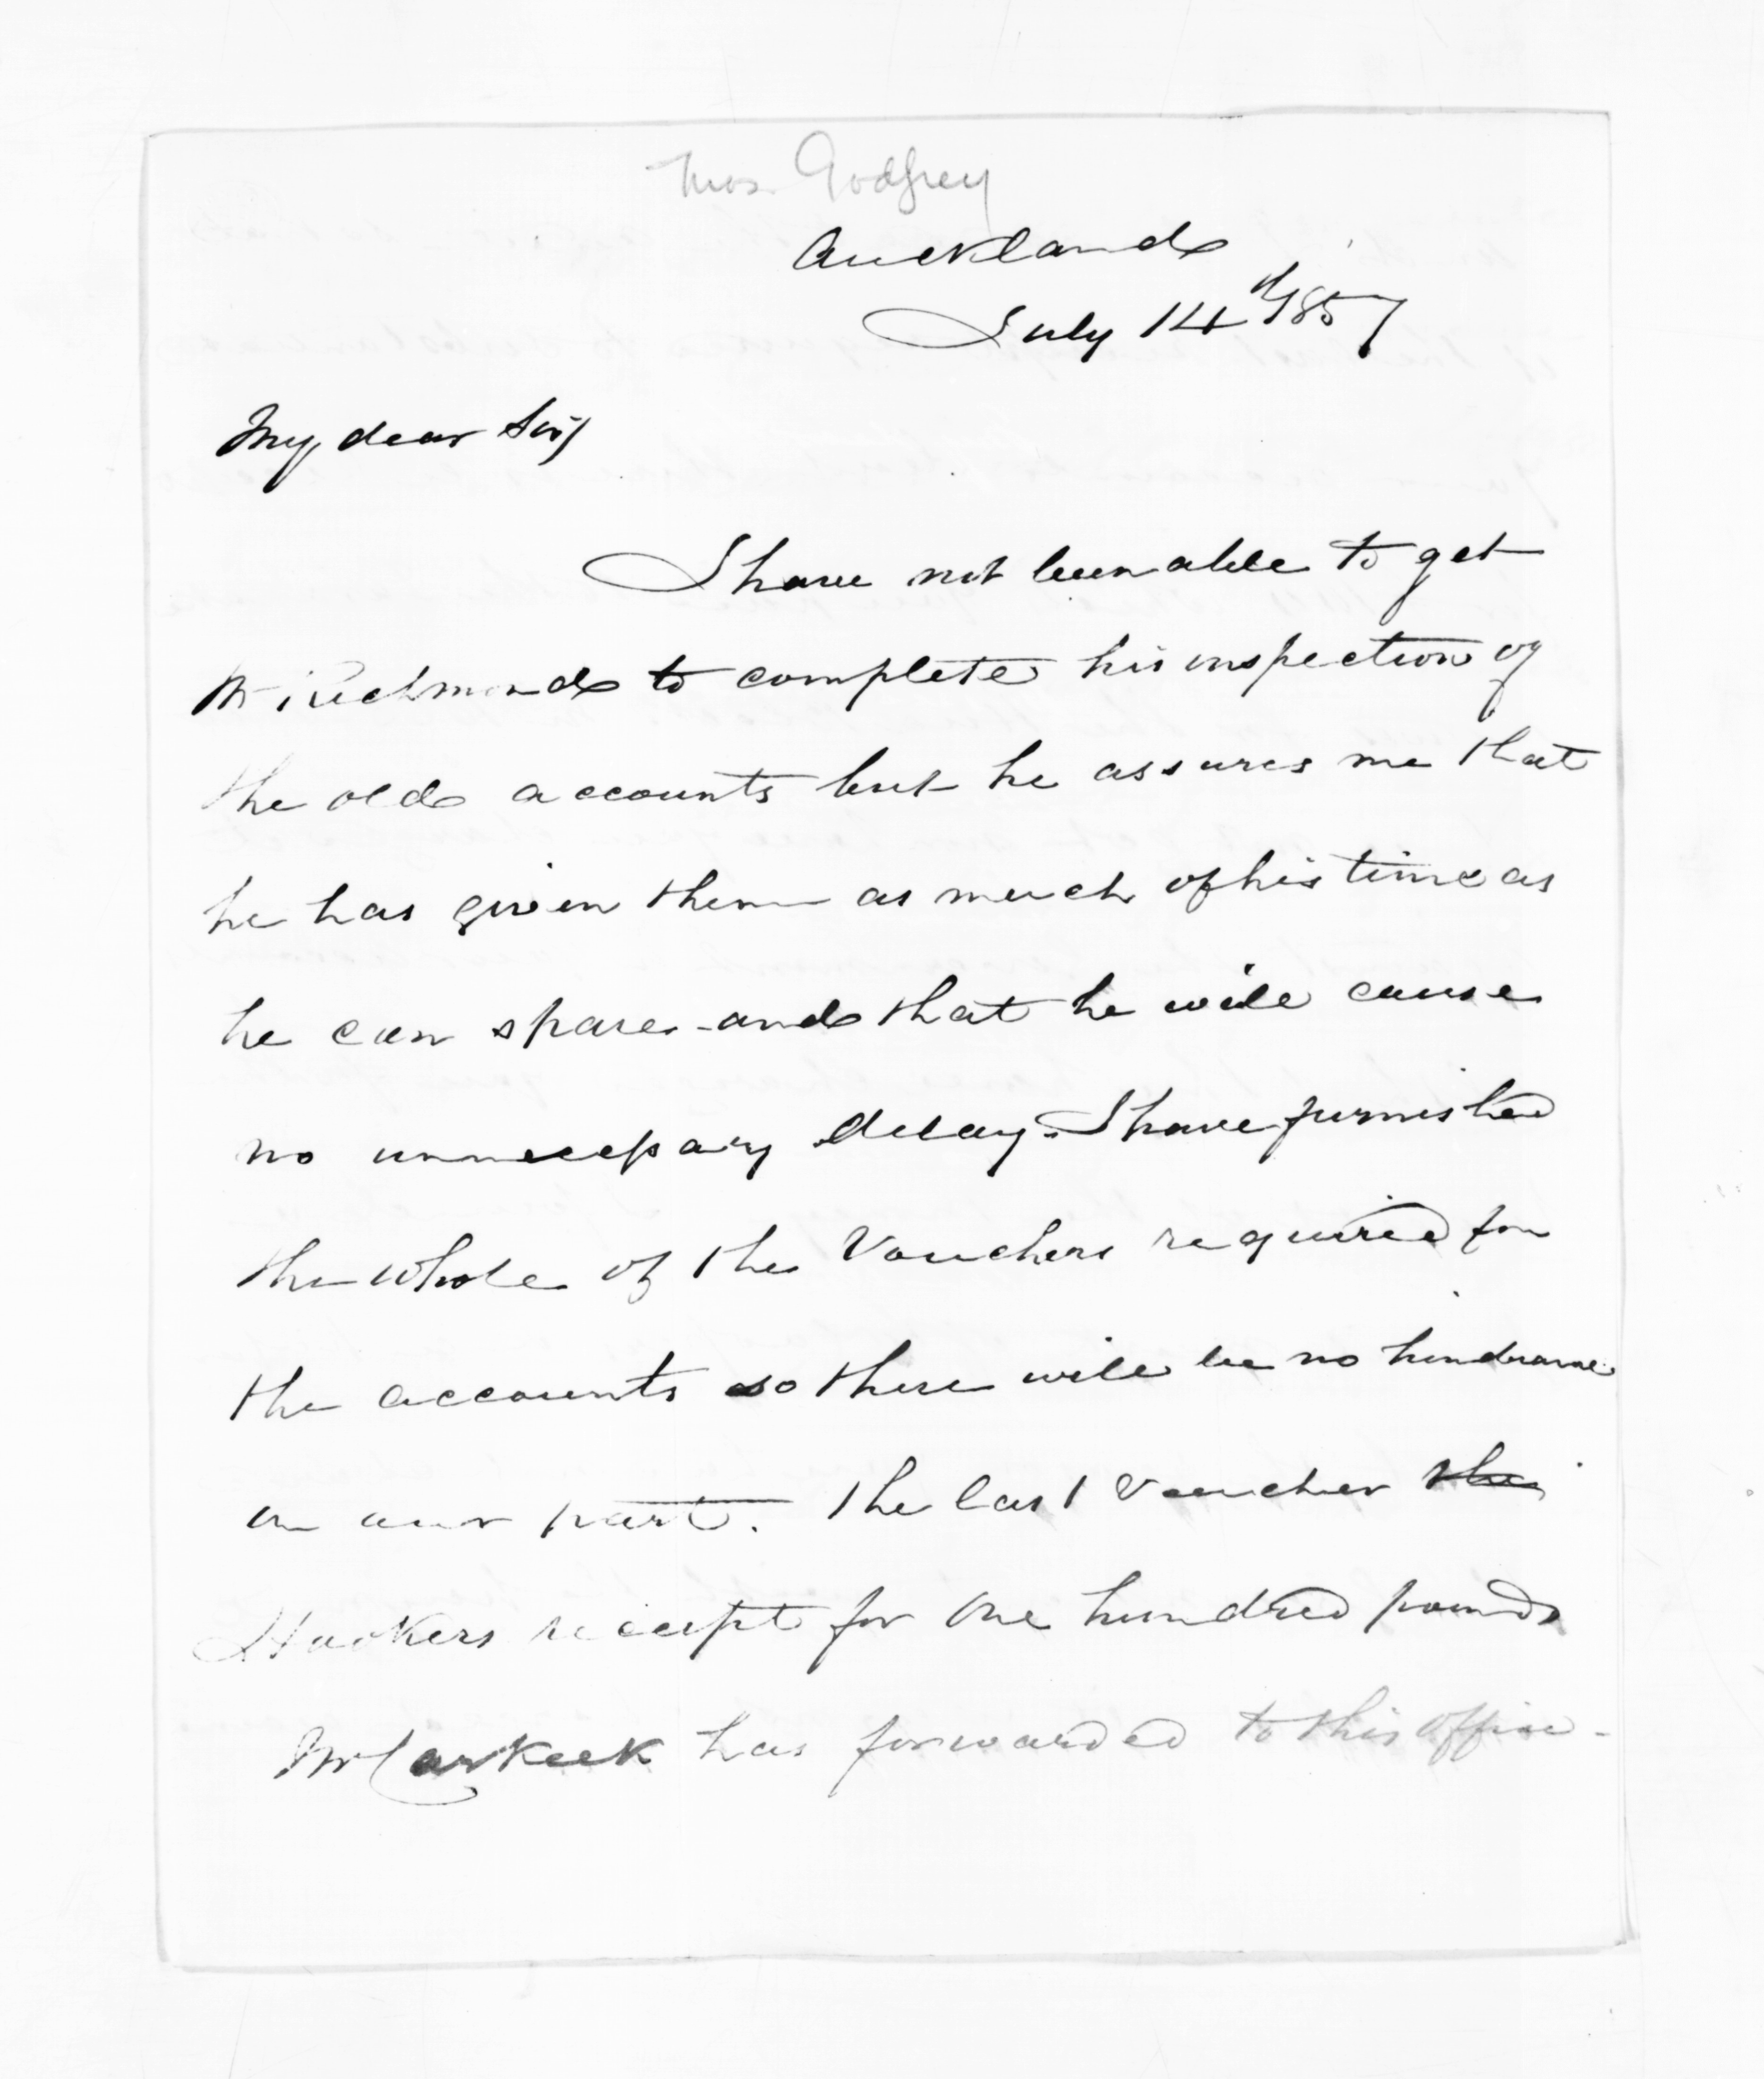 Thos. Godfrey
Auckland
July 14th 1857
My dear Sir,
I have not been able to get
Mr Richmond to complete his inspection of
the old accounts but he assures me that
he has given them as much of his time as
he can spare and that he will cause
no unnecessary delay. I have furnished
the whole of the Vouchers required for
the accounts so there will be no hindrance
on our part. The last Voucher the
Hookers receipt for One hundred pounds
Mr Carkeek has forwarded to this Office -